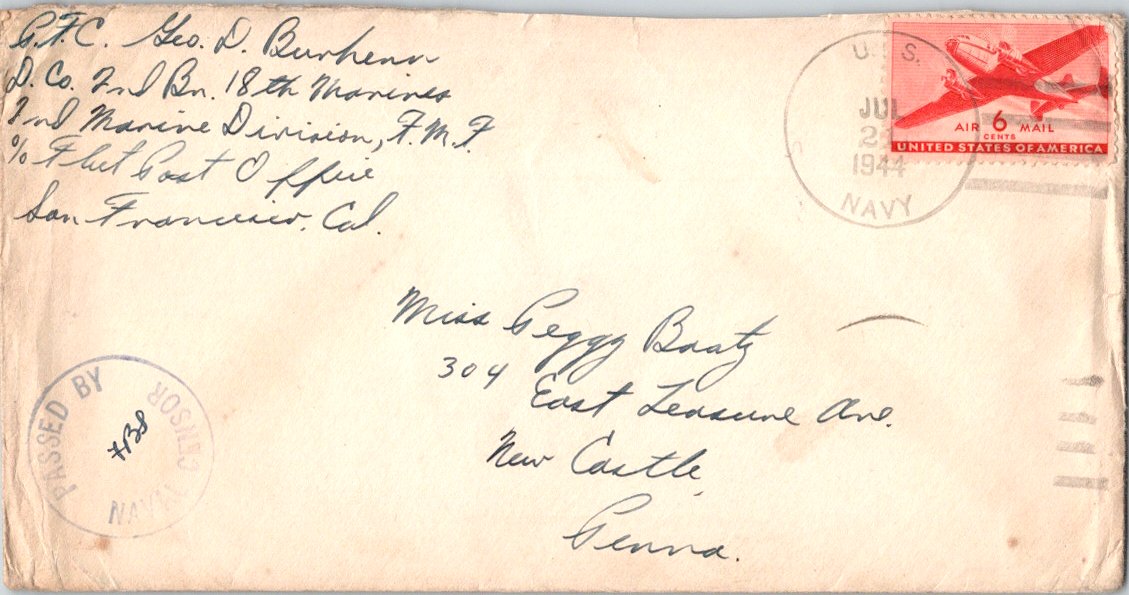 P.F.C. Geo. D. Burhenn
D. Co. 2nd Bn. 18th Marines
2nd Marine Division, F.M.F.
% Fleet Post Office
San Francisco, Cal.
U. S.
JUL
1944
NAVY
AIR 6 MAIL
CENTS
UNITED STATES OF AMERICA
Miss Peggy Baatz
304 East Leasure Ave.
New Castle
Penna.
PASSED BY
CENSOR
NAVAL